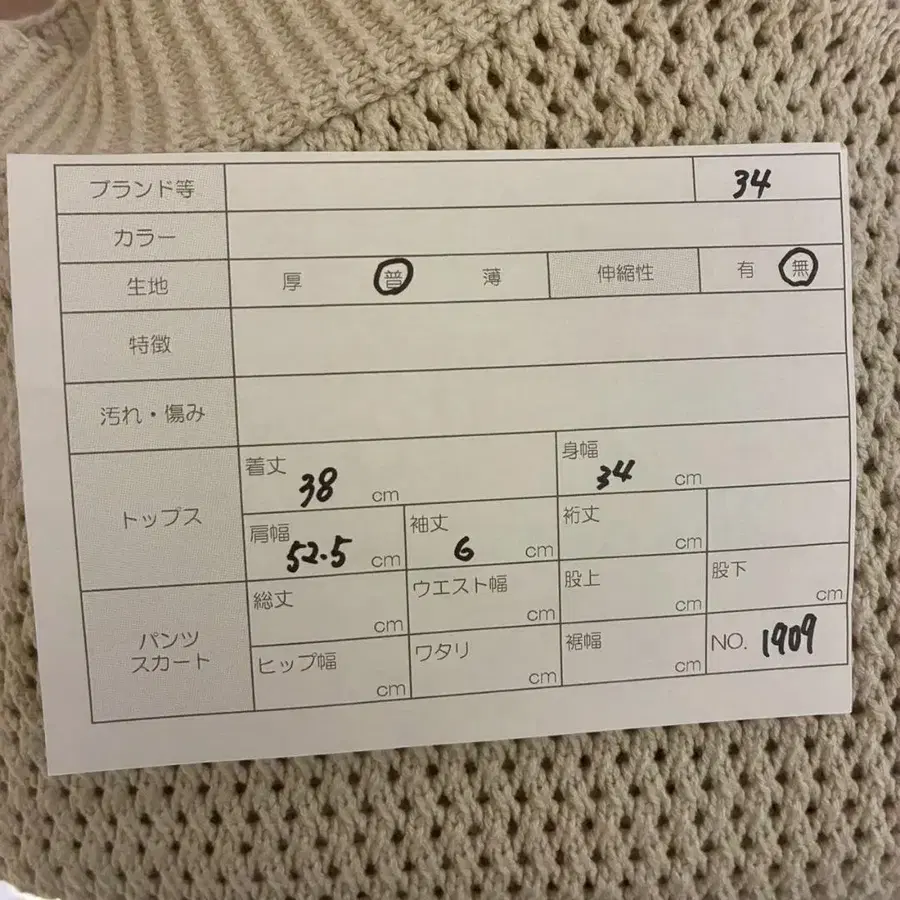 ブランド等 34
カラー
生地 厚 普 薄 伸縮性 有 無
特徴
汚れ・傷み
トップス
着丈 38 cm 身幅 34 cm
肩幅 52.5 cm 袖丈 6 cm 裄丈 cm
パンツ
スカート
総丈 cm ウエスト幅 cm 股上 cm 股下 cm
ヒップ幅 cm ワタリ cm 裾幅 cm NO. 1909